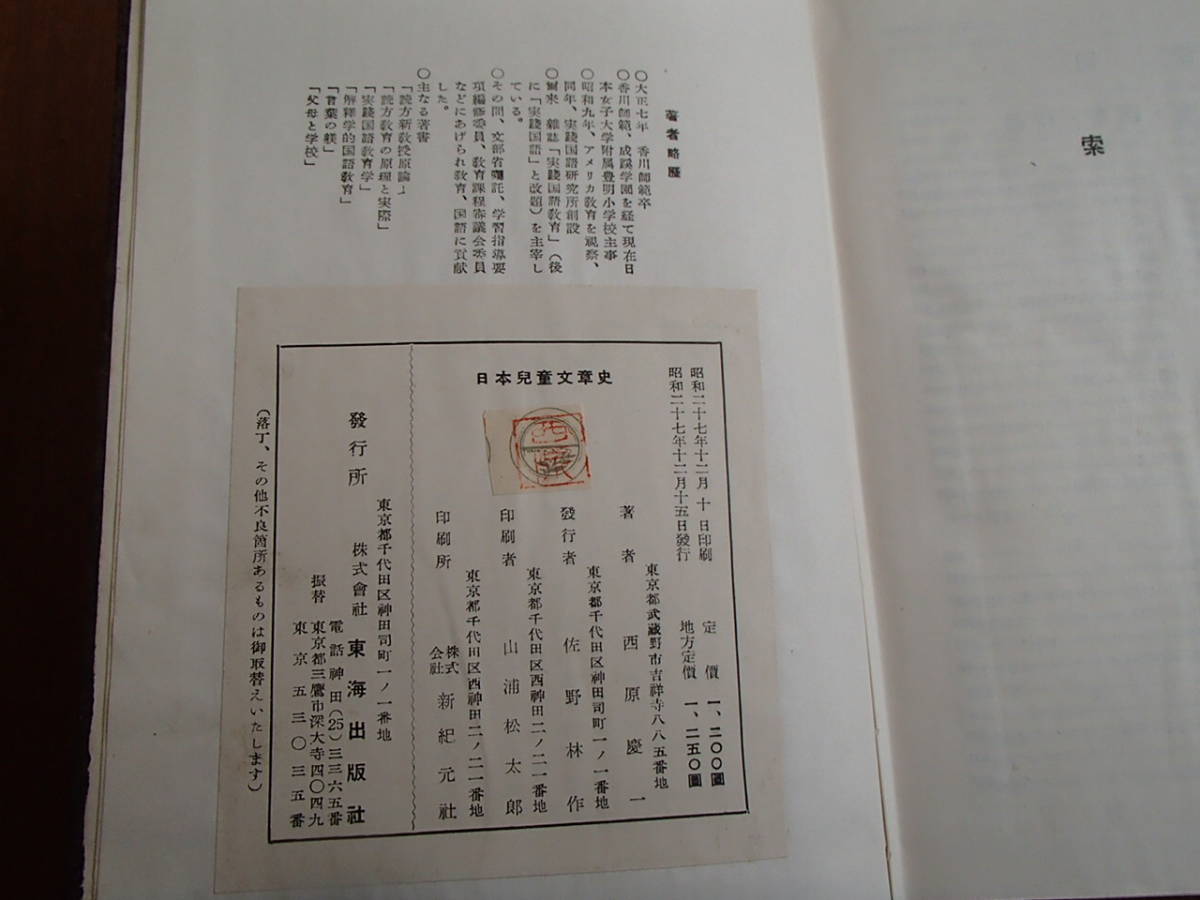 索
著者略歴
○大正七年 香川師範卒
○香川師範、成蹊学園を経て現在日
本女子大学附属豊明小学校主事
○昭和九年、アメリカ教育を視察、
同年、実践国語研究所創設
○爾来 雑誌「実践国語教育」(後
に「実践国語」と改題)を主宰し
ている。
○その間、文部省嘱託、学習指導要
項編修委員、教育課程審議会委員
などにあげられ教育、国語に貢献
した。
○主なる著書
「読方新教授原論」
「読方教育の原理と実際」
「実践国語教育学」
「解釋学的国語教育」
「言葉の躾」
「父母と学校」
昭和二十七年十二月 十 日印刷
昭和二十七年十二月十五日發行
定 價 一、二〇〇圓
地方定價 一、二五〇圓
日本兒童文章史
西原
東京都武蔵野市吉祥寺八八五番地
著者 西原慶一
東京都千代田区神田司町一ノ一番地
發行者 佐野林作
東京都千代田区西神田二ノ二一番地
印刷者 山浦松太郎
東京都千代田区西神田二ノ二一番地
印刷所 株式会社 新紀元社
東京都千代田区神田司町一ノ一番地
發行所 株式會社 東海出版社
電話神田(25)三三六五番
東京都三鷹市深大寺四〇四九
振替 東京五三〇三五番
(落丁、その他不良箇所あるものは御取替えいたします)